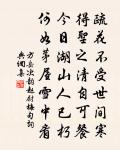 疏花不受世間寒
得聖之清自可餐
今日湖山人已朽
何如茅屋雪中看
方岳次韵赵尉梅句詞
典網集